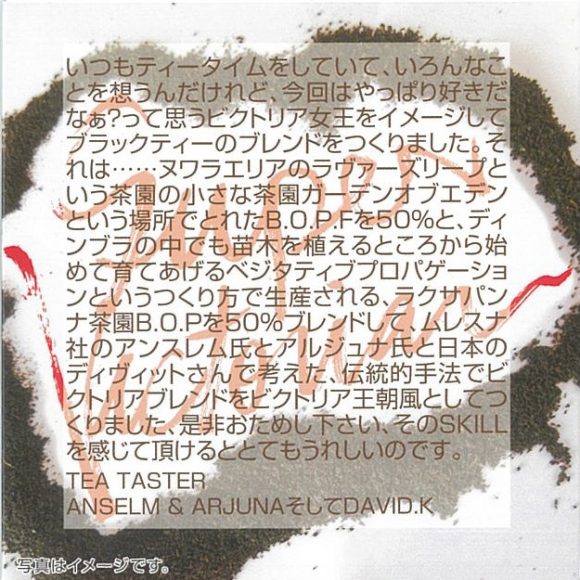 いつもティータイムをしていて、いろんなこ
とを想うんだけれど、今回はやっぱり好きだ
なぁ?って思うビクトリア女王をイメージして
ブラックティーのブレンドをつくりました。そ
れは……ヌワラエリアのラヴァーズリープと
いう茶園の小さな茶園ガーデンオブエデン
という場所でとれたB.O.P.Fを50%と、ディ
ンブラの中でも苗木を植えるところから始
めて育てあげるベジタティブプロパゲーショ
ンというつくり方で生産される、ラクサパン
ナ茶園B.O.Pを50%ブレンドして、ムレスナ
社のアンスレム氏とアルジュナ氏と日本の
ディヴィットさんで考えた、伝統的手法でビ
クトリアブレンドをビクトリア王朝風としてつ
くりました、是非おためし下さい、そのSKILL
を感じて頂けるととてもうれしいのです。
TEA TASTER
ANSELM & ARJUNAそしてDAVID.K
Super
Victorian
写真はイメージです。